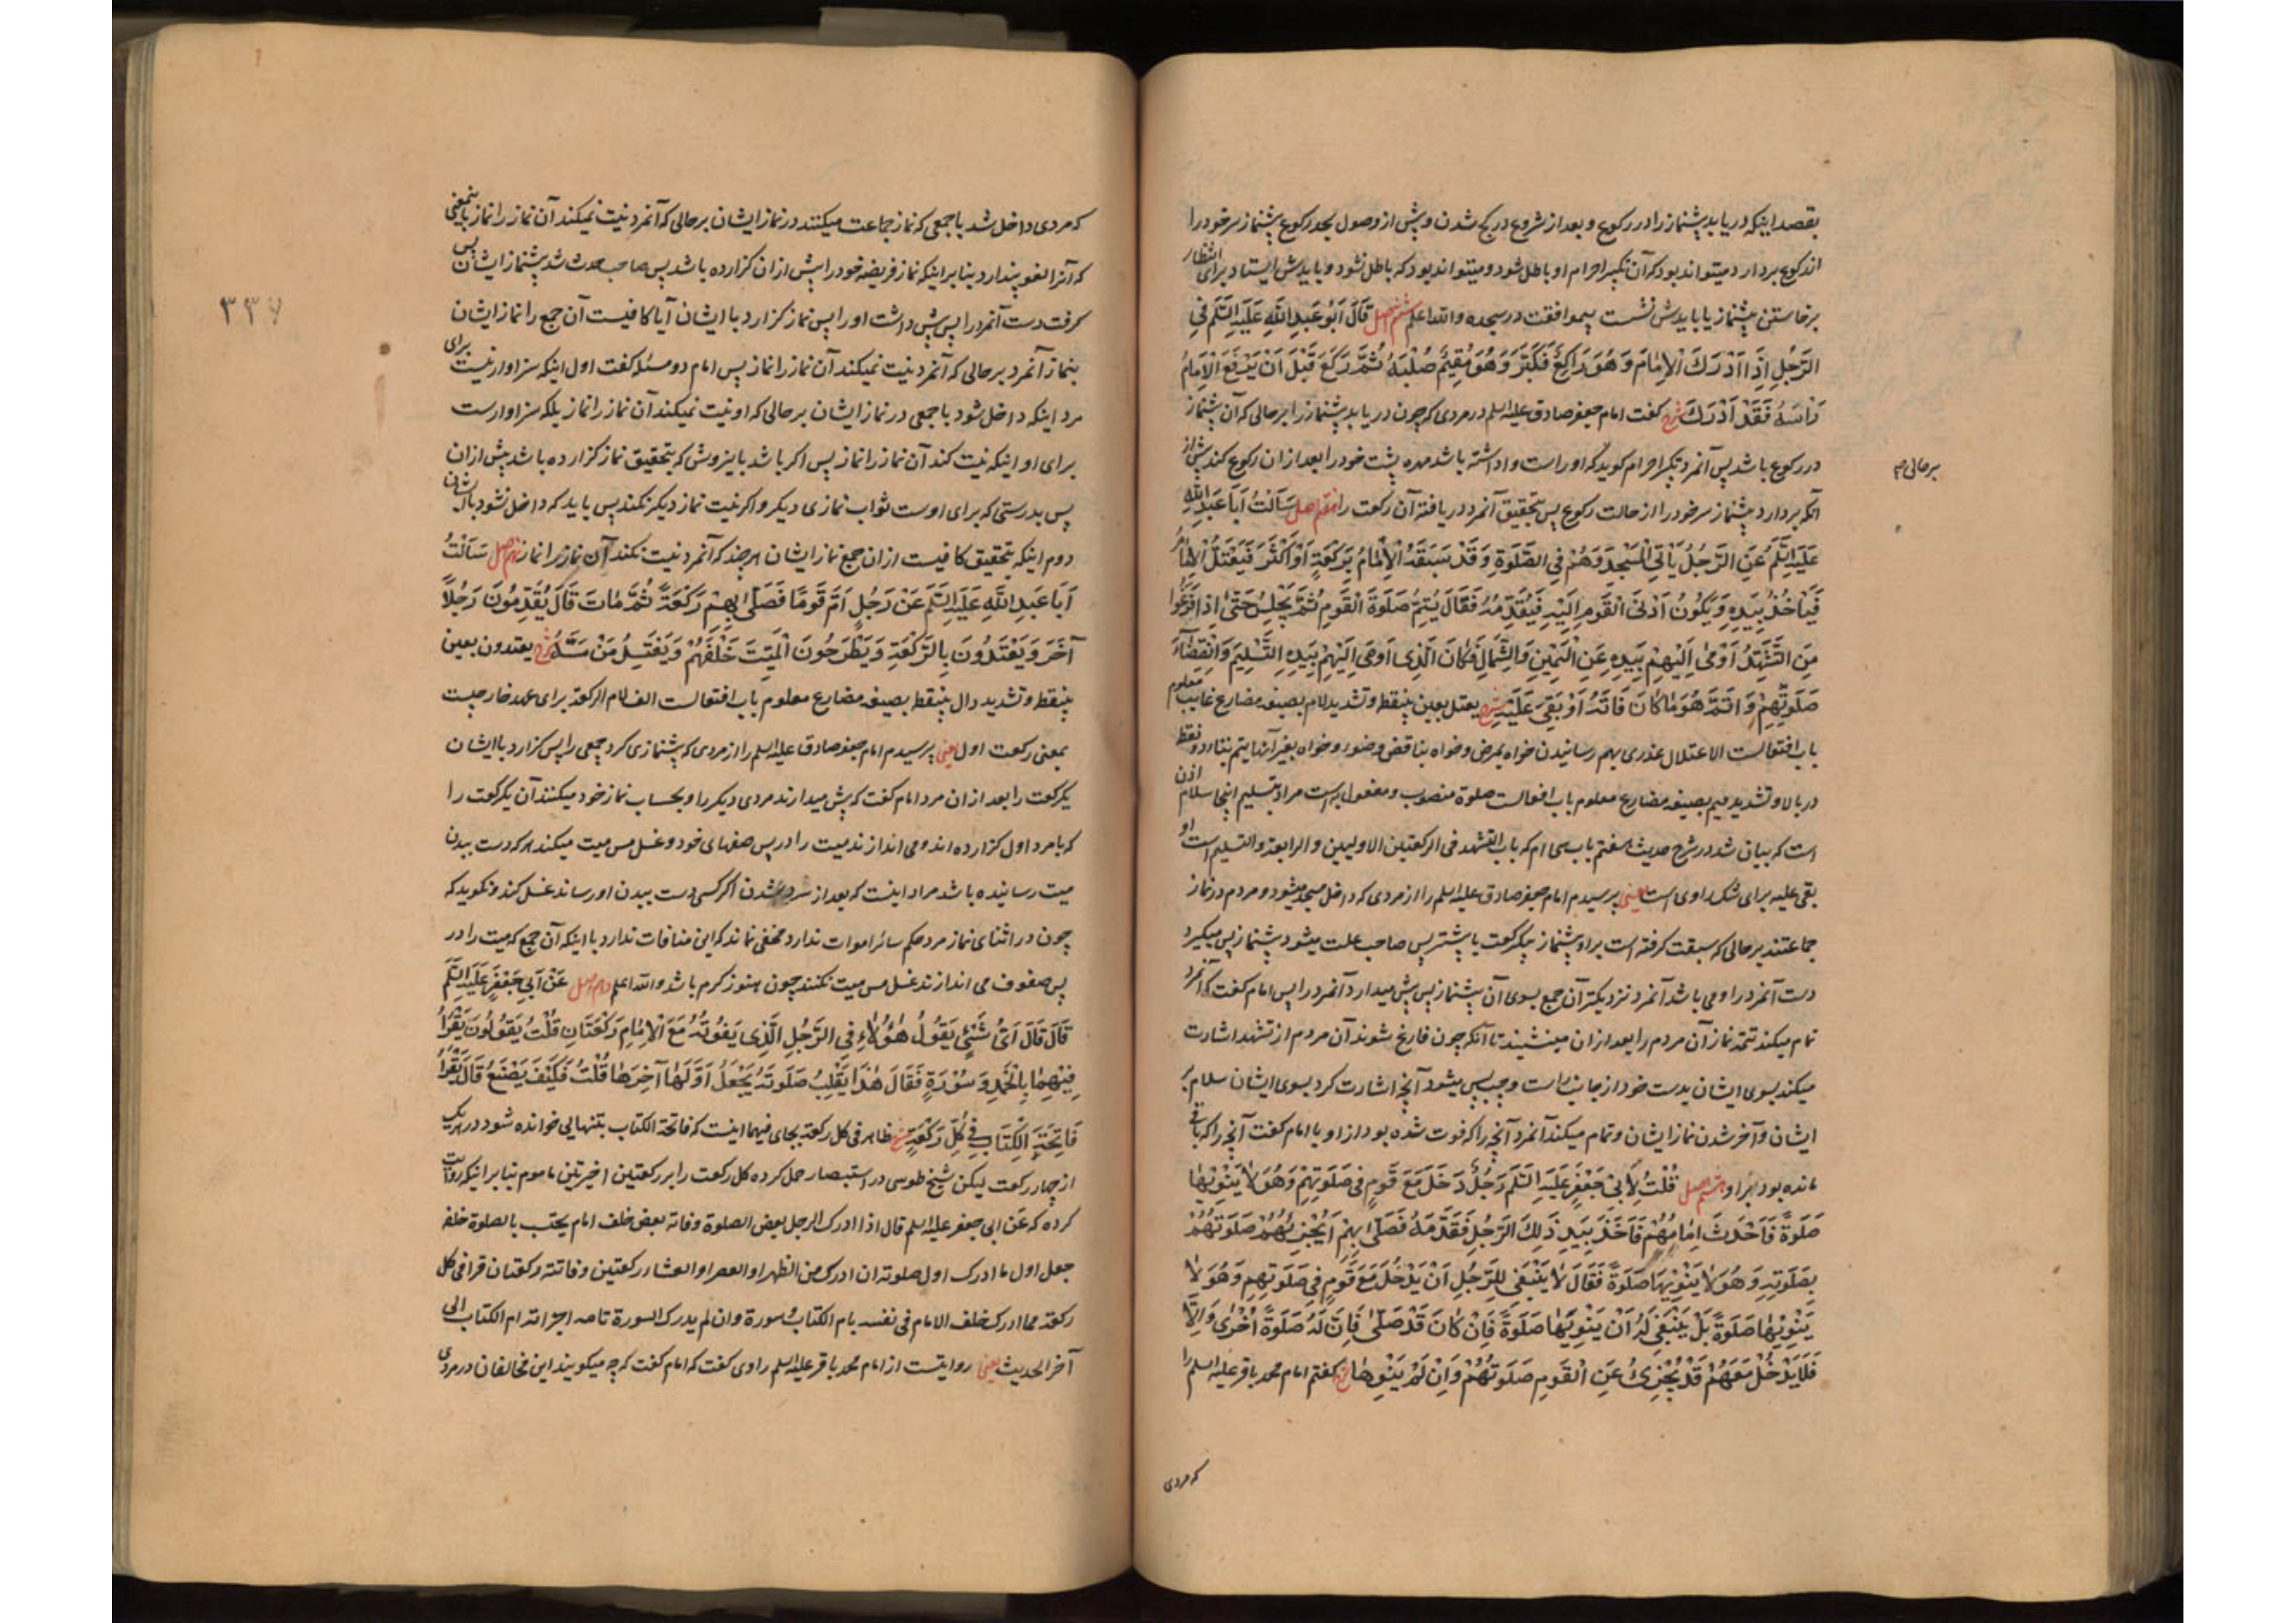 بقصد اینکه دریابد پیشنماز را در رکوع و بعد از شروع در کج شدن و پیش از وصول بحد رکوع پیشنماز سر خود را
از رکوع بردارد میتواند بود که آن تکبیر احرام او باطل شود و میتواند بود که باطل نشود و بایدش ایستاد برای انتظار
برخاستن پیشنماز یا بایدش نشست بموافقت در سجده والله اعلم ششم اصل قَالَ أَبُو عَبْدِ اللَّهِ عَلَيْهِ السَّلَمُ فِي
الرَّجُلِ إِذَا أَدْرَكَ الْإِمَامَ وَهُوَ رَاكِعٌ فَكَبَّرَ وَهُوَ مُقِيمٌ صُلْبَهُ ثُمَّ رَكَعَ قَبْلَ أَنْ يَرْفَعَ الْإِمَامُ
رَأْسَهُ فَقَدْ أَدْرَكَ شرح گفت امام جعفر صادق علیه السلم در مردی که چون دریابد پیشنماز را برحالی که آن پیشنماز
در رکوع باشد پس آنمرد تکبیر احرام گوید که او راست واداشته باشد مهره پشت خود را بعد از ان رکوع کند پیش از
برحالی
آنکه بردارد پیشنماز سر خود را از حالت رکوع پس بتحقیق آنمرد دریافته آن رکعت را هفتم اصل سَأَلْتُ أَبَا عَبْدِ اللَّهِ
عَلَيْهِ السَّلَمُ عَنِ الرَّجُلُ يَأْتِي الْمَسْجِدَ وَهُمْ فِي الصَّلَوةِ وَقَدْ سَبَقَهُ الْإِمَامُ بِرَكْعَةٍ أَوْ أَكْثَرَ فَيَعْتَلُّ الْإِمَامُ
فَيَأْخُذُ بِيَدِهِ وَيَكُونُ أَدْنَى الْقَوْمِ إِلَيْهِ فَيُقَدِّمُهُ فَقَالَ يُتِمُّ صَلَوةَ الْقَوْمِ ثُمَّ يَجْلِسُ حَتَّى إِذَا فَرَغُوا
مِنَ التَّشَهُّدِ أَوْمَى إِلَيْهِمْ بِيَدِهِ عَنِ الْيَمِينِ وَالشِّمَالِ فَكَانَ الَّذِي أَوْمَى إِلَيْهِمْ بِيَدِهِ التَّسْلِيمَ وَانْقِضَاءَ
صَلَوتِهِمْ وَأَتَمَّ هُوَ مَا كَانَ فَاتَهُ أَوْ بَقِيَ عَلَيْهِ شرح یعتل بعین بینقطه و تشدید لام بصیغه مضارع غایب معلوم
باب افتعالست الاعتلال عذری بهم رسانیدن خواه بمرض و خواه بناقض وضو و خواه بغیر آنها یتم بتاء دو نقطه
در بالا و تشدید میم بصیغه مضارع معلوم باب افعالست صلوة منصوب و مفعول به است مراد بتسلیم اینجا سلام اذن
است که بیان شد در شرح حدیث هفتم باب سی ام که باب التشهد فی الرکعتین الاولیین و الرابعة و التسلیم است او
بقی علیه برای شک راوی است یعنی پرسیدم امام جعفر صادق علیه السلم را از مردی که داخل مسجد میشود و مردم در نماز
جماعتند برحالی که سبقت گرفته است بر او پیشنماز بیکرکعت یا بیشتر پس صاحب علت میشود پیشنماز پس میگیرد
دست آنمرد را و می باشد آنمرد نزدیکتر آن جمع بسوی آن پیشنماز پس پیش میدارد آنمرد را پس امام گفت که آنمرد
تمام میکند تتمه نماز آن مردم را بعد از ان مینشیند تا آنکه چون فارغ شوند آن مردم از تشهد اشارت
میکند بسوی ایشان بدست خود از جانب راست و چپ پس میشود آنچه اشارت کرد بسوی ایشان سلام بر
ایشان و آخر شدن نماز ایشان و تمام میکند آنمرد آنچه را که فوت شده بود از او یا امام گفت آنچه را که باقی
مانده بود بر او هشتم اصل قُلْتُ لِأَبِي جَعْفَرٍ عَلَيْهِ السَّلَمُ رَجُلٌ دَخَلَ مَعَ قَوْمٍ فِي صَلَوتِهِمْ وَهُوَ لَا يَنْوِيهَا
صَلَوةً فَأَحْدَثَ إِمَامُهُمْ فَأَخَذَ بِيَدِ ذَلِكَ الرَّجُلِ فَقَدَّمَهُ فَصَلَّى بِهِمْ أَيُجْزِئُهُمْ صَلَوتُهُمْ
بِصَلَوتِهِ وَهُوَ لَا يَنْوِيهَا صَلَوةً فَقَالَ لَا يَنْبَغِي لِلرَّجُلِ أَنْ يَدْخُلَ مَعَ قَوْمٍ فِي صَلَوتِهِمْ وَهُوَ لَا
يَنْوِيهَا صَلَوةً بَلْ يَنْبَغِي لَهُ أَنْ يَنْوِيَهَا صَلَوةً فَإِنْ كَانَ قَدْ صَلَّى فَإِنَّ لَهُ صَلَوةً أُخْرَى وَإِلَّا
فَلَا يَدْخُلْ مَعَهُمْ قَدْ يُجْزِئُ عَنِ الْقَوْمِ صَلَوتُهُمْ وَإِنْ لَمْ يَنْوِهَا شرح گفتم امام محمد باقر علیه السلم را
که مردی
که مردی داخل شد با جمعی که نماز جماعت میکنند در نماز ایشان برحالی که آنمرد نیت نمیکند آن نماز را نماز باینمعنی
که آنرا لغو پندارد بنا بر اینکه نماز فریضه خود را پیش از ان گزارده باشد پس صاحب حدث شد پیشنماز ایشان پس
گرفت دست آنمرد را پس پیش داشت او را پس نماز گزارد با ایشان آیا کافیست آن جمع را نماز ایشان
۳۳۷
بنماز آنمرد برحالی که آنمرد نیت نمیکند آن نماز را نماز پس امام دو مسئله گفت اول اینکه سزاوار نیست برای
مرد اینکه داخل شود با جمعی در نماز ایشان برحالی که او نیت نمیکند آن نماز را نماز بلکه سزاوارست
برای او اینکه نیت کند آن نماز را نماز پس اگر باشد باینروش که بتحقیق نماز گزارده باشد پیش از ان
پس بدرستی که برای اوست ثواب نمازی دیگر و اگر نیت نماز دیگر نکند پس باید که داخل نشود با ایشان
دوم اینکه بتحقیق کافیست از ان جمع نماز ایشان هرچند که آنمرد نیت نکند آن نماز را نماز نهم اصل سَأَلْتُ
أَبَا عَبْدِ اللَّهِ عَلَيْهِ السَّلَمُ عَنْ رَجُلٍ أَمَّ قَوْمًا فَصَلَّى بِهِمْ رَكْعَةً ثُمَّ مَاتَ قَالَ يُقَدِّمُونَ رَجُلًا
آخَرَ وَيَعْتَدُّونَ بِالرَّكْعَةِ وَيَطْرَحُونَ الْمَيِّتَ خَلْفَهُمْ وَيَغْتَسِلُ مَنْ مَسَّهُ شرح یعتدون بعین
بینقطه و تشدید دال بینقطه بصیغه مضارع معلوم باب افتعالست الف لام الرکعة برای عهد خارجیست
بمعنی رکعت اول یعنی پرسیدم امام جعفر صادق علیه السلم را از مردی که پیشنمازی کرد جمعی را پس گزارد با ایشان
یکرکعت را بعد از ان مرد امام گفت که پیش میدارند مردی دیگر را و بحساب نماز خود میکنند آن یکرکعت را
که با مرد اول گزارده اند و می اندازند میت را در پس صفهای خود و غسل مس میت میکند هر که دست ببدن
میت رسانیده باشد مراد اینست که بعد از سرد شدن اگر کسی دست ببدن او رساند غسل کند و نگوید که
چون در اثنای نماز مرد حکم سائر اموات ندارد مخفی نماند که این منافات ندارد با اینکه آن جمع که میت را در
پس صفوف می اندازند غسل مس میت نکنند چون هنوز گرم باشد والله اعلم دهم اصل عَنْ أَبِي جَعْفَرٍ عَلَيْهِ السَّلَمُ
قَالَ قَالَ أَيُّ شَيْءٍ يَقُولُ هَؤُلَاءِ فِي الرَّجُلِ الَّذِي يَفُوتُهُ مَعَ الْإِمَامِ رَكْعَتَانِ قُلْتُ يَقُولُونَ يَقْرَأُ
فِيهِمَا بِالْحَمْدِ وَسُورَةٍ فَقَالَ هَذَا يَقْلِبُ صَلَوتَهُ يَجْعَلُ أَوَّلَهَا آخِرَهَا قُلْتُ فَكَيْفَ يَصْنَعُ قَالَ يَقْرَأُ
فَاتِحَةَ الْكِتَابِ فِي كُلِّ رَكْعَةٍ شرح ظاهر فی کل رکعة بجای فیهما اینست که فاتحة الکتاب بتنهایی خوانده شود در هر یک
از چهار رکعت لیکن شیخ طوسی در استبصار حمل کرده کل رکعت را بر رکعتین اخیرتین ماموم بنا بر اینکه روایت
کرده که عن ابی جعفر علیه السلم قال اذا ادرک الرجل بعض الصلوة وفاته بعض خلف امام یحتسب بالصلوة خلفه
جعل اول ما ادرک اول صلوته ان ادرک من الظهر او العصر او العشاء رکعتین وفاتته رکعتان قرأ فی کل
رکعة مما ادرک خلف الامام فی نفسه بام الکتاب و سورة وان لم یدرک السورة تامة اجزأته ام الکتاب الی
آخر الحدیث یعنی روایتست از امام محمد باقر علیه السلم راوی گفت که امام گفت که چه میگویند این مخالفان در مردی